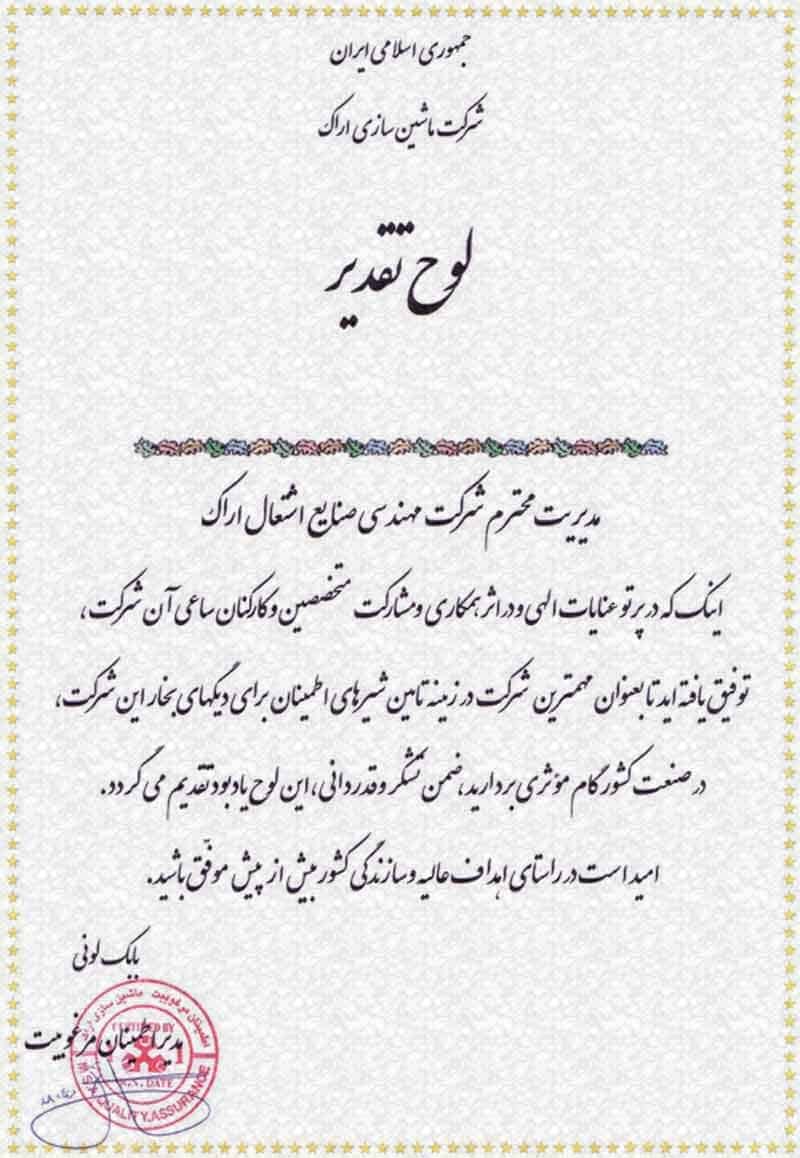 جمهوری اسلامی ایران
شرکت ماشین سازی اراک
لوح تقدیر
مدیریت محترم شرکت مهندسی صنایع اشتعال اراک
اینک که در پرتو عنایات الهی و در اثر همکاری و مشارکت متخصصین و کارکنان ساعی آن شرکت،
توفیق یافته اید تا بعنوان مهمترین شرکت در زمینه تامین شیرهای اطمینان برای دیگهای بخار این شرکت،
در صنعت کشور گام مؤثری بردارید، ضمن تشکر و قدردانی، این لوح یادبود تقدیم می گردد.
امید است در راستای اهداف عالیه و سازندگی کشور بیش از پیش موفّق باشید.
بابک لونی
مدیر اطمینان مرغوبیت
اطمینان مرغوبیت ماشین سازی اراک
CERTIFIED BY
1
DATE
QUALITY.ASSURANCE